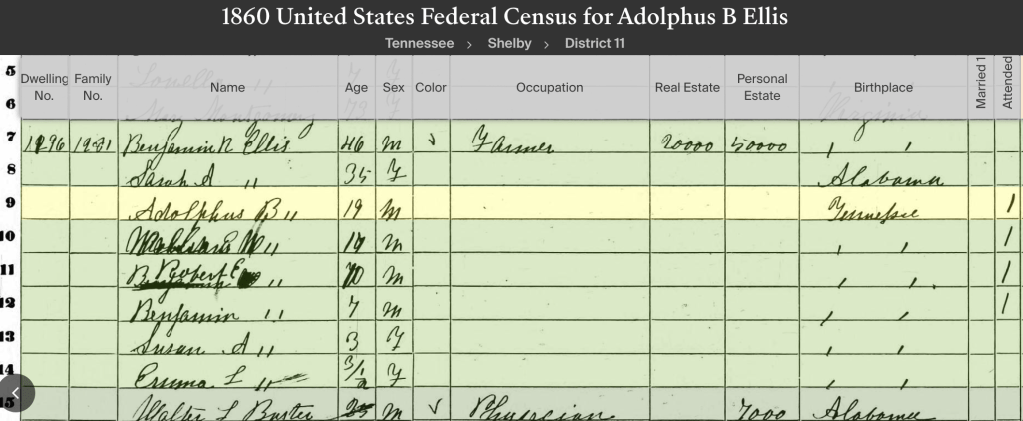 1860 United States Federal Census for Adolphus B Ellis
Tennessee > Shelby > District 11
Dwelling No. Family No. Name Age Sex Color Occupation Real Estate Personal Estate Birthplace Married 1 Attended
5 Louella " 7 F
6 Mary Montgomery 79 F Virginia
7 1296 1281 Benjamin R Ellis 46 m Farmer 20000 50000 " "
8 Sarah A " 35 F Alabama
9 Adolphus B " 19 m Tennessee 1
10 " m " " 1
11 Robert E " 10 m " " 1
12 Benjamin " 7 m " " 1
13 Susan A " 3 F " "
14 Emma L " 3/12 F " "
15 Walter L m Physician 7000 Alabama